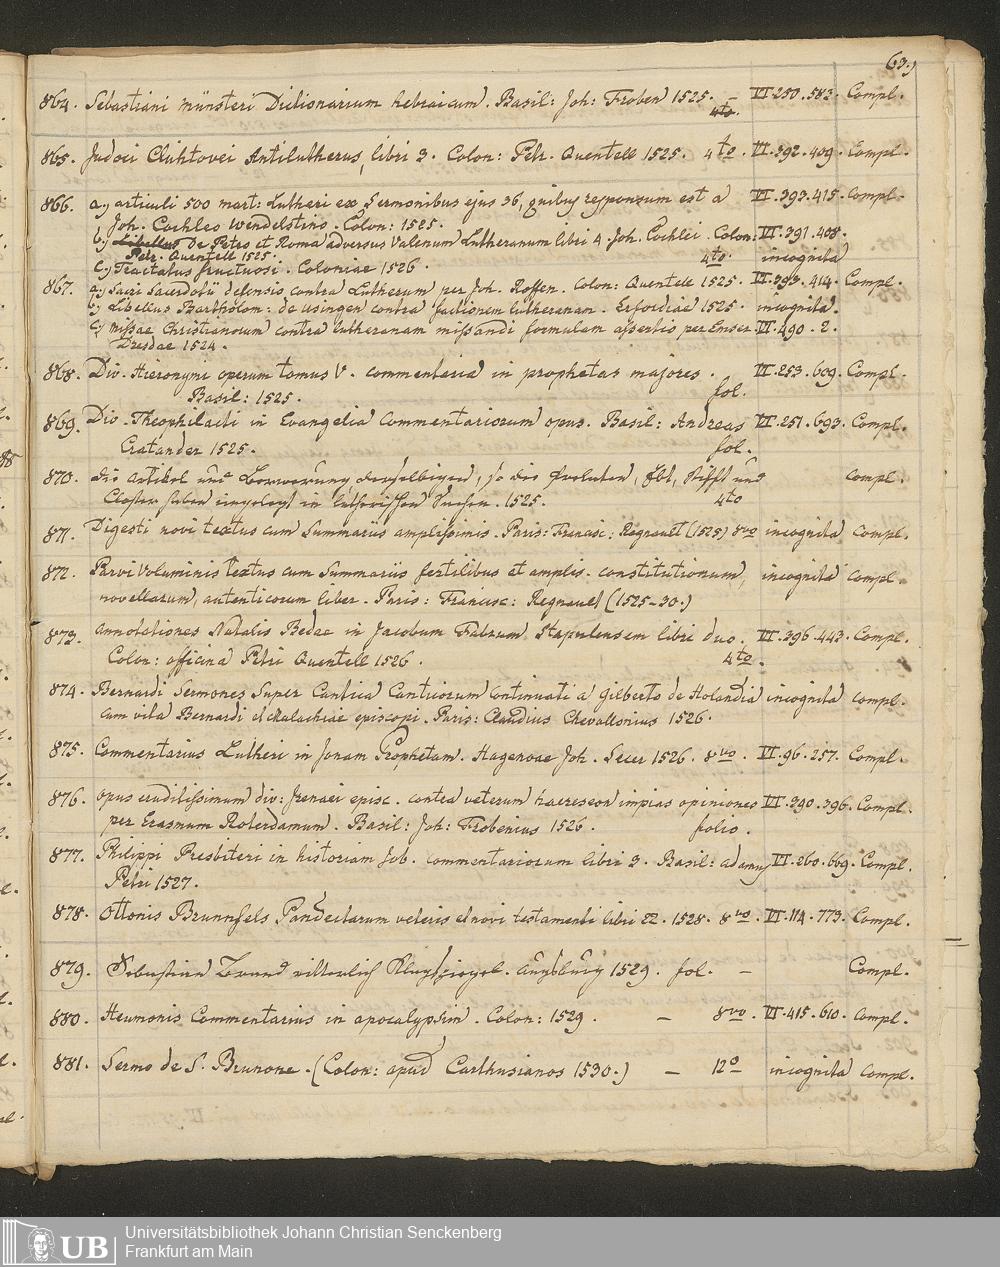 63.)
864. Sebastiani münsteri Dictionarium hebraicum. Basil: Joh: Froben 1525. – 4to. VI. 250. 583. Compl.
865. Judoci Clichtovei Antilutherus, libri 3. Colon: Petr. Quentell 1525. 4to. VI. 392. 409. Compl.
866. a.) articuli 500 mart: Lutheri ex Sermonibus ejus 36, quibus responsum est a VI. 393. 415. Compl.
Joh. Cochleo Wendelstino. Colon: 1525.
b.) Libellus De Petro et Roma adversus Valenum Lutheranum libri 4. Joh. Cochlei. Colon: VI. 391. 408.
Petr. Quentell 1525. 4to. incognita
c.) Tractatus fructuosi. Coloniae 1526.
867. a.) Sacri Sacerdotii defensio contra Lutherum per Joh. Roffen. Colon: Quentell 1525. VI. 393. 414. Compl.
b.) Libellus Barthólon: de usingen contra factionem lutheranam. Erfordiae 1525. incognita.
c.) missae Christianorum contra lutheranam missandi formulam assertio per Emser. VI. 490. 2.
Dresdae 1524.
868. Div. Hieronymi operum tomus V. commentaria in prophetas majores. VI. 253. 609. Compl.
Basil: 1525. fol.
869. Div. Theophilacti in Evangelia Commentariorum opus. Basil: Andreas VI. 251. 693. Compl.
Cratander 1525. fol.
870. die artikel und derselbigen, so die Prelaten, Ebt, Stifft und compl.
Closter haben eingelegt in lutherischen Sachen. 1525. 4to
871. Digesti novi textus cum Summariis amplissimis. Paris: Francisc: Regnault (1525) 8vo incognita compl.
872. Parvi Voluminis textus cum Summariis fertilibus et amplis. constitutionum, incognita compl.
novellarum, autenticorum liber. Paris: Francisc: Regnault (1525–30.)
873. Annotationes Natalis Bedae in Jacobum Fabrum Stapulensem libri duo. VI. 396. 443. Compl.
Colon: officina Petri Quentell 1526. 4to.
874. Bernardi Sermones Super Cantica Canticorum continuati a Gilberto de Holandia incognita compl.
cum vita Bernardi et Malachiae episcopi. Paris: Claudius Chevallonius 1526.
875. Commentarius Lutheri in Jonam Prophetam. Hagenoae Joh. Secer 1526. 8vo. VI. 96. 257. Compl.
876. opus eruditissimum div: Irenaei episc. contra veterum haereseon impias opiniones VI. 390. 396. Compl.
per Erasmum Roterdamum. Basil: Joh: Frobenius 1526. folio.
877. Philippi Presbiteri in historiam Job. commentariorum libri 3. Basil: adamus VI. 260. 669. Compl.
Petri 1527.
878. Ottonis Brunnfels Pandectarum veteris et novi testamenti libri 22. 1528. 8vo. VI. 114. 773. Compl.
879. Sebastian Brand Augsburg 1529. fol. – Compl.
880. Heumonis Commentarius in apocalypsim. Colon: 1529. – 8vo. VI. 415. 610. Compl.
881. Sermo de S. Brunone. (Colon: apud Carthusianos 1530.) – 12o incognita compl.
UB
Universitätsbibliothek Johann Christian Senckenberg
Frankfurt am Main